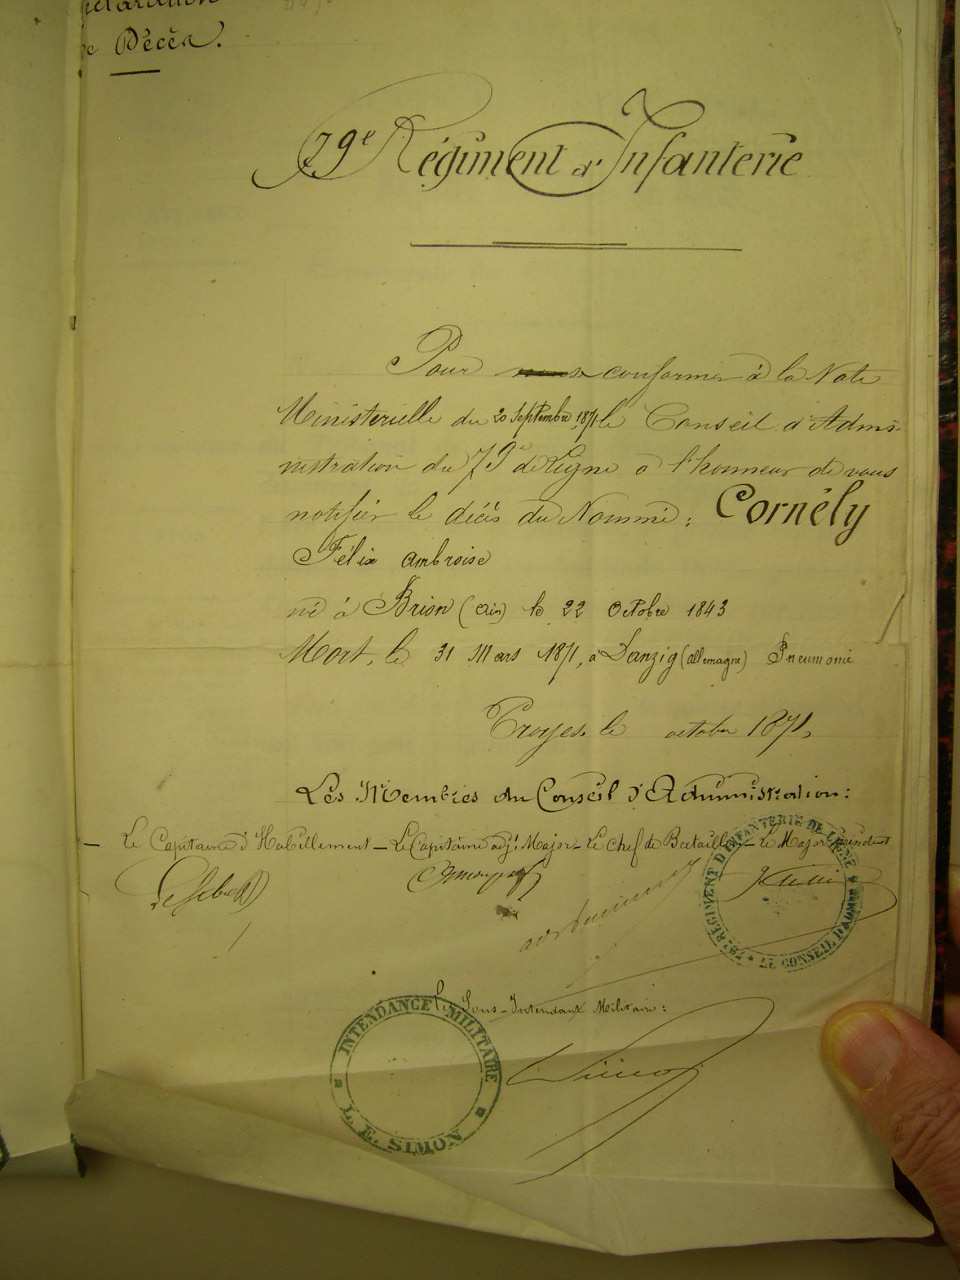 de Décès.
79e Régiment d'Infanterie
Pour se conformer à la Note
Ministerielle du 20 Septembre 1871 le Conseil d'Admi-
nistration du 79e de Ligne a l'honneur de vous
notifier le décès du Nommé: Cornély
Félix ambroise
né à Brion (Ain) le 22 Octobre 1843
Mort, le 31 Mars 1871, à Danzig (allemagne) Pneumonie
Troyes, le octobre 1871,
Les Membres du Conseil d'Administration:
Le Capitaine d'Habillement - Le Capitaine adjt Major - Le Chef de Bataillon - Le Major Président
79e REGIMENT D'INFANTERIE DE LIGNE * LE CONSEIL D'ADMON *
le Sous-Intendant Militaire:
INTENDANCE MILITAIRE
L. E. SIMON